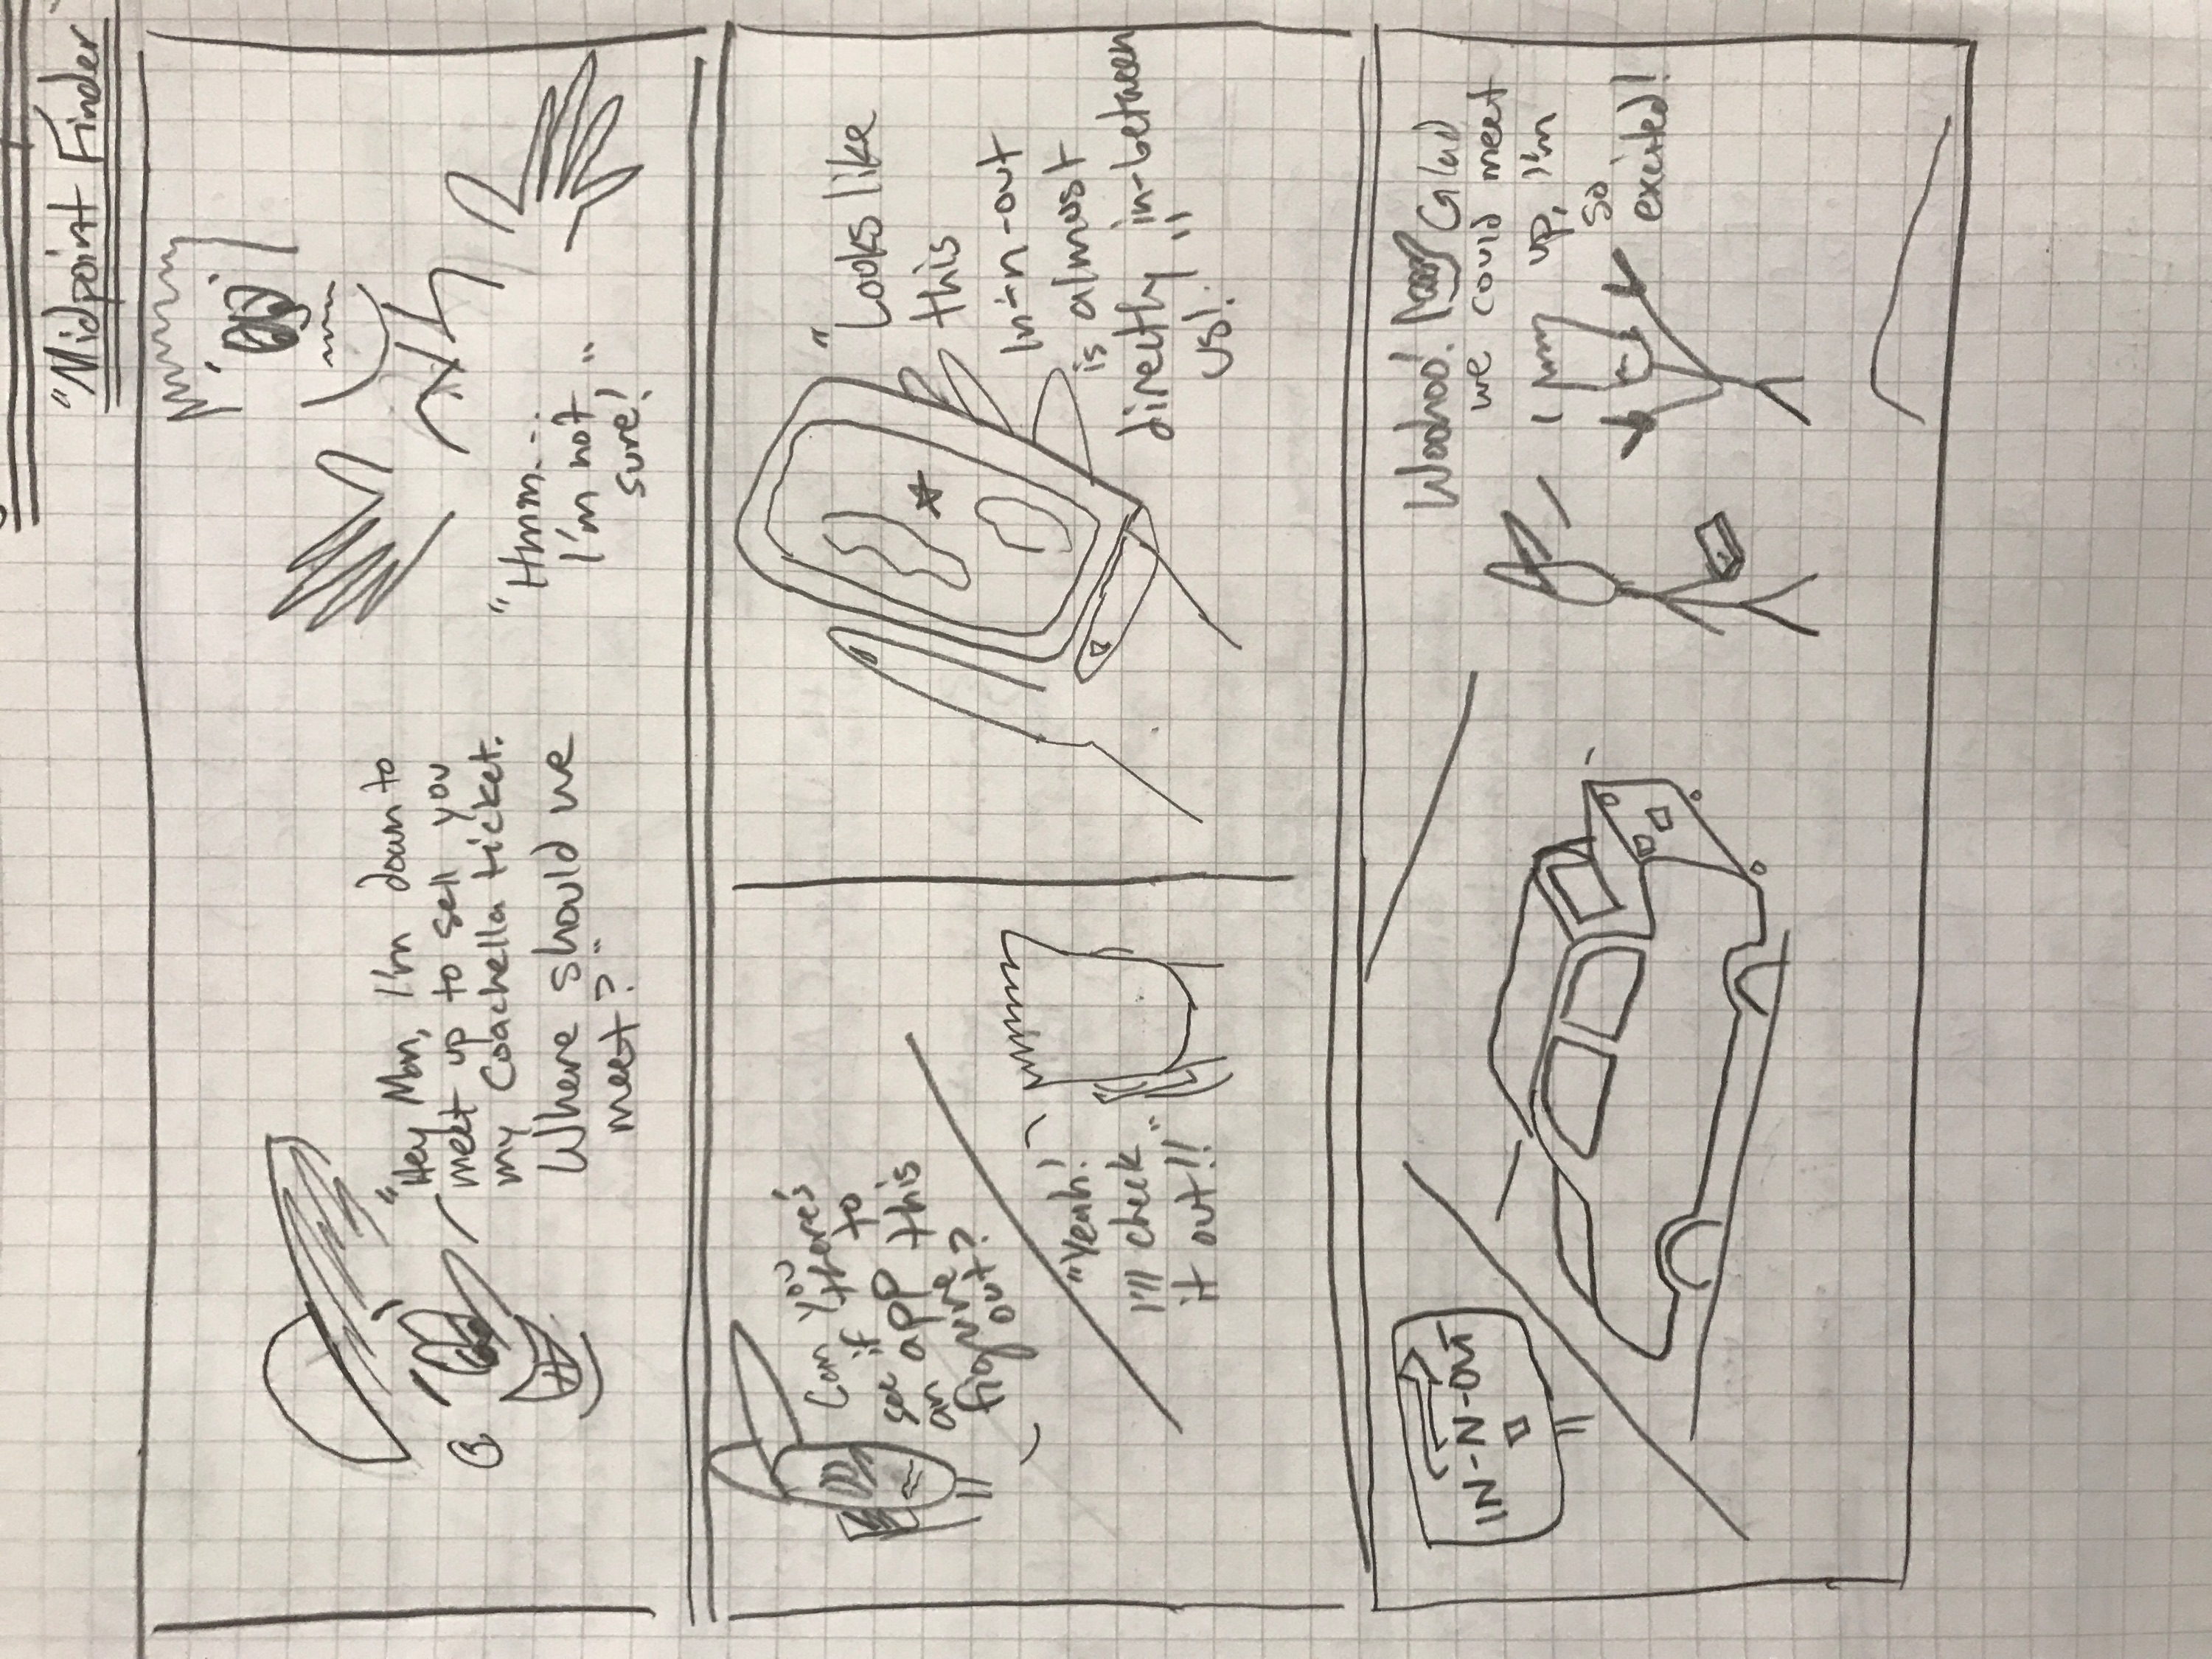 "Midpoint Finder"
"Hey Man, I'm down to
meet up to sell you
my Coachella ticket.
Where should we
meet?"
"Hmm...
I'm not
sure!"
Can you
see if there's
an app to
figure this
out?
"Yeah!
I'll check
it out!!"
"Looks like
this
In-n-out
is almost
directly in-between
us!"
IN-N-OUT
Woohoo! Glad
we could meet
up, I'm
so
excited!